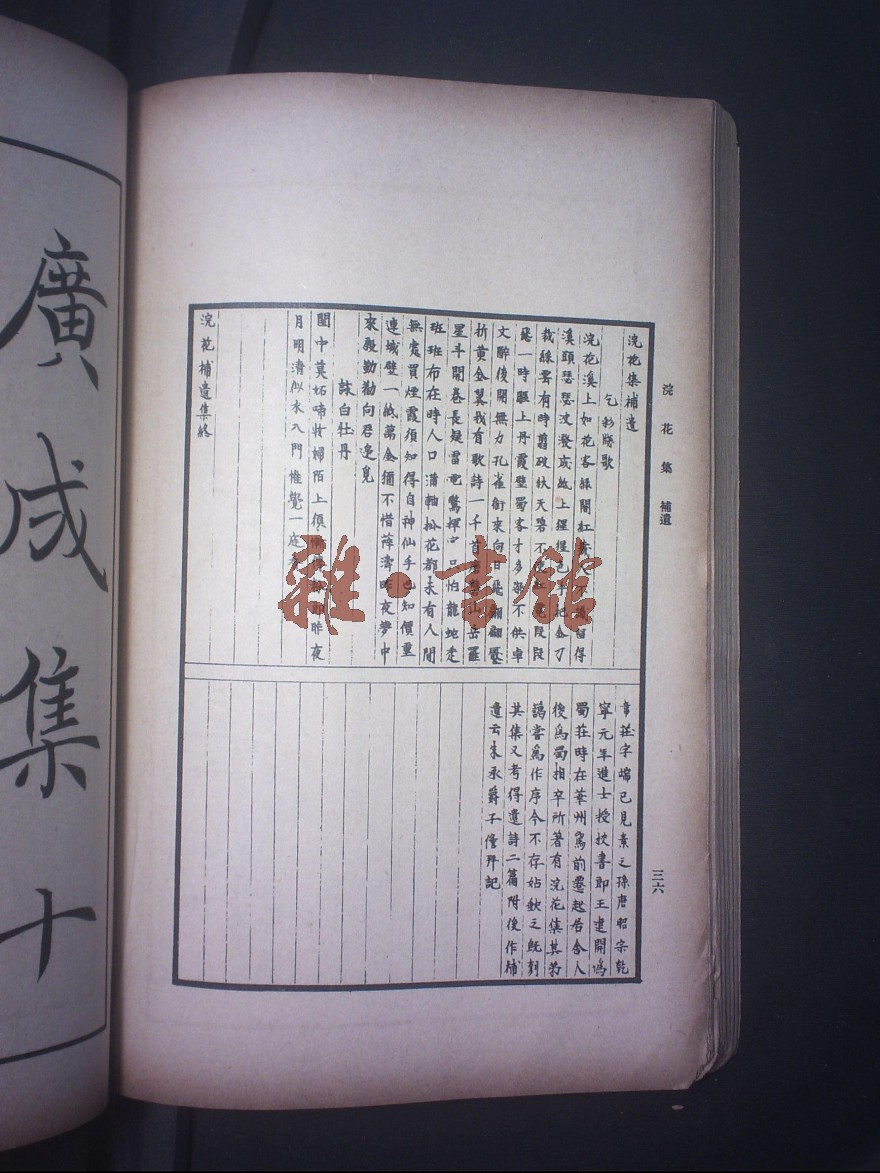 浣花集 補遺
三六
浣花集補遺
乞彩牋歌
浣花溪上如花客綠闇紅不識留得
溪頭瑟瑟波潑成紙上猩猩色手把金刀
裁綵雲有時翦破秋天碧不使紅霓段段
飛一時驅上丹霞壁蜀客才多染不供卓
文醉後開無力孔雀銜來向日飛翩翩壓
折黃金翼我有歌詩一千首磨礱山岳羅
星斗開卷長疑雷電驚揮只怕龍蛇走
班班布在時人口滿軸松花都未有人間
無處買煙霞須知得自神仙手也知價重
連城璧一紙萬金猶不惜薛濤昨夜夢中
來殷勤勸向君邊覓
詠白牡丹
閨中莫妬啼妝婦陌上須慚傅粉郎昨夜
月明清似水入門惟覺一庭香
浣花補遺集終
韋莊字端已見素之孫唐昭宗乾
寧元年進士授挍書郎王建開偽
蜀莊時在華州駕前遷起居舍人
後為蜀相卒所著有浣花集其弟
藹嘗為作序今不存姑欽之既刻
其集又考得遺詩二篇附後作補
遺云朱承爵子儋再記
廣成集十
雜·書館